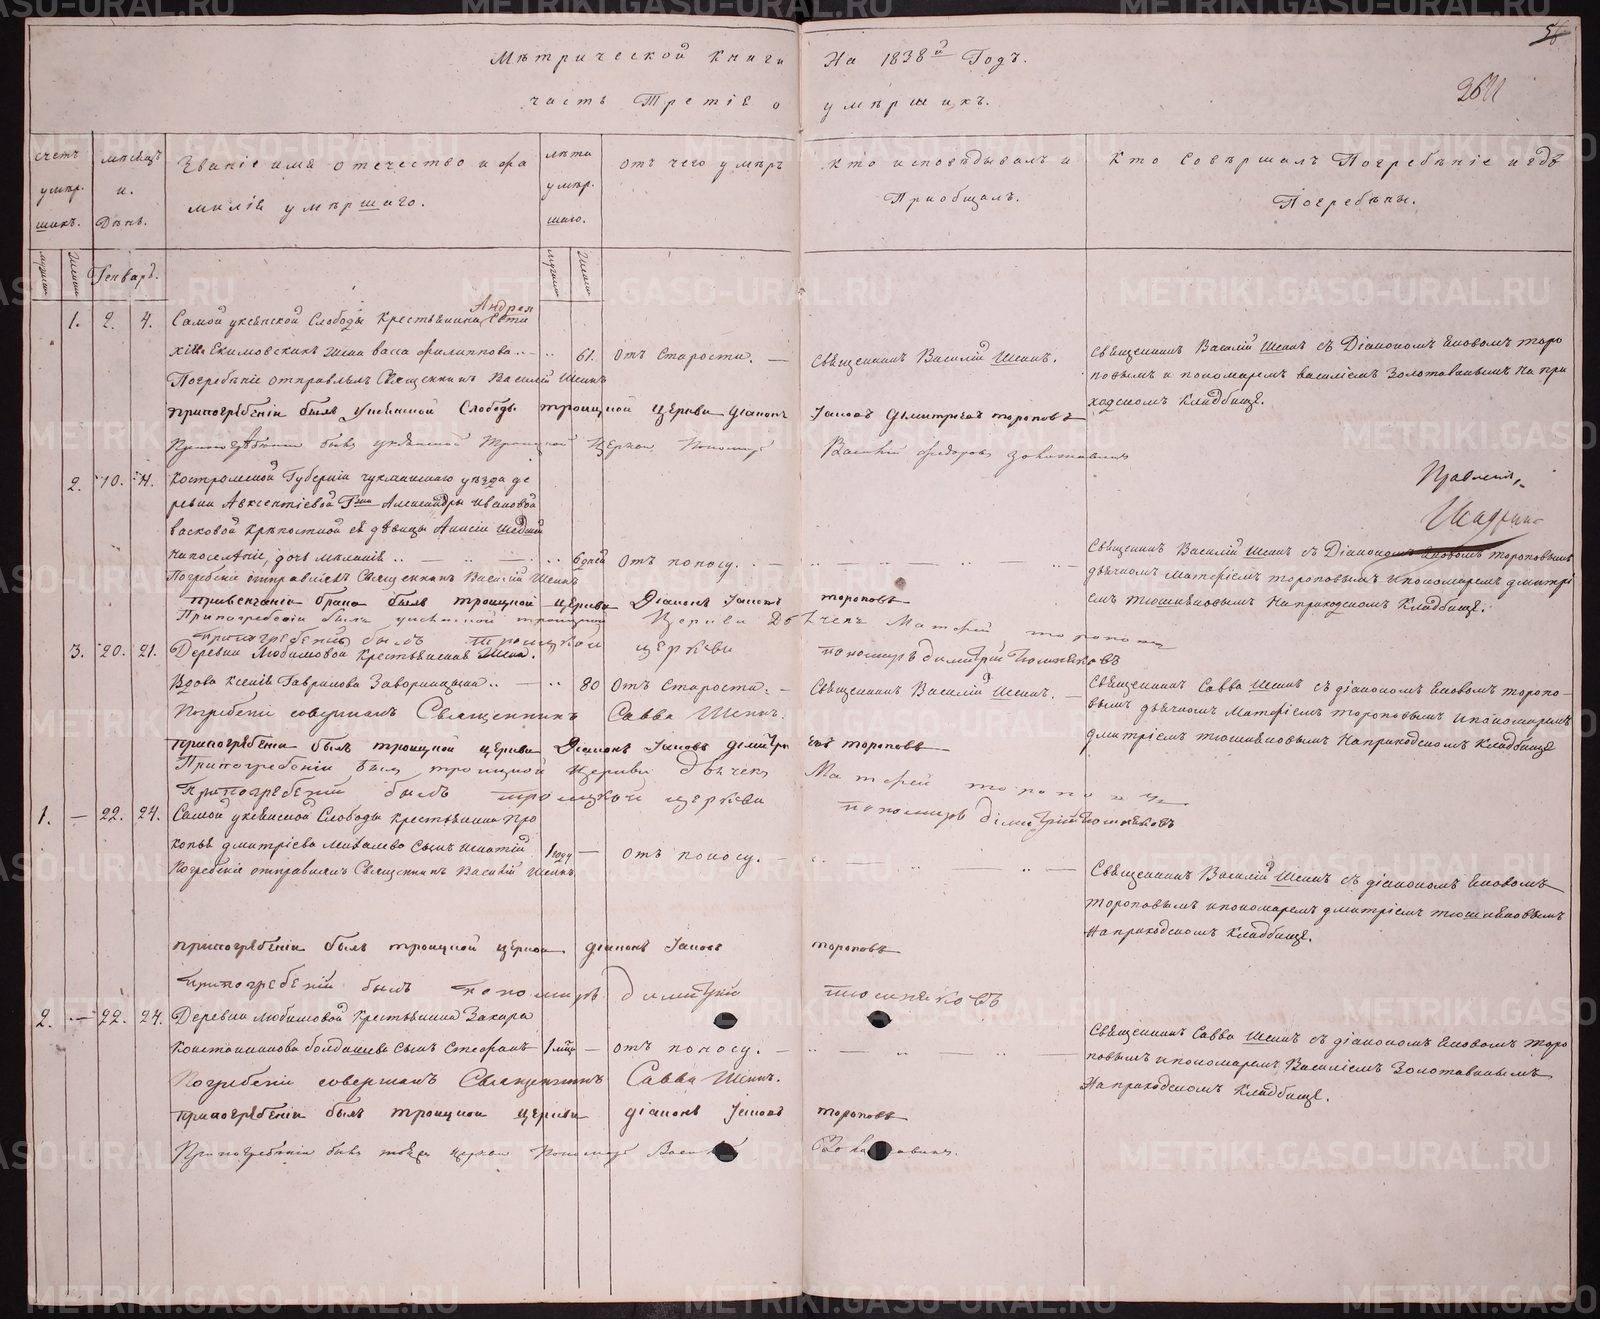 Мѣтрической книги На 1838й Годъ.
часть Третія о умѣршихъ.
56
счетъ умѣршихъ.
мѣсяцъ и. Дѣнь.
Званіе имя отечество и фамиліѣ умѣршаго.
лѣта умѣршаго.
отъ чего умѣръ
кто исповѣдывалъ и Приобщалъ.
Кто Совѣршалъ Погребѣніе и гдѣ Погребѣны.
Генварь.
1. 2. 4. Самой укѣнской Слободы Крестьянина Андрея
Екимовскихъ жена васса филиппова 61. отъ Старости. Свѣщенникъ Василій Шенинъ.
Свѣщенникъ Василій Шенинъ съ Діакономъ Іаковомъ торо
повымъ и пономаремъ василіемъ Золотавинымъ На при
ходскомъ Кладбище.
Погребѣніе отправлялъ Священникъ Василій
припогрѣбеніи былъ Слободы троицкой церкви діаконъ Іаковъ Дмитріевъ тороповъ
Припогрѣбеніи былъ Троицкой Церкви Пономарь Василій федоровъ золотавинъ
2. 10. 11. Костромской Губерніи чухломскаго уѣзда де
ревни Авксентіевой Гжи Александры ивановой
васковой крѣпостной еѣ дѣвицы Анисіи
дочь мѣланія 6 дней отъ поносу.
Свѣщенникъ Василій съ Діакономъ Іаковомъ тороповымъ
дьячкомъ Матфіемъ тороповымъ и пономаремъ дмитрі
емъ На приходскомъ Кладбище.
Погребѣніе отправлялъ Священникъ Василій
привенчаніи брака былъ троицкой церкви Діаконъ Іаковъ тороповъ
Припогребеніи былъ троицкой Церкви Дьячекъ Матфей тороповъ
припогребеніи былъ троицкой церкви пономарь димитрій
3. 20. 21. Деревни Любимовой Крестьянская Жена.
Вдова Ксенія Гаврилова 80 отъ Старости. Свѣщенникъ Василій
Свѣщенникъ Савва съ діакономъ Іаковомъ торопо-
вымъ дьячкомъ Матфіемъ тороповымъ и пономаремъ
дмитріемъ На приходскомъ Кладбище
Погребеніе совершалъ Священникъ Савва
припогрѣбеніи былъ троицкой церкви Діаконъ Іаковъ дмитріевъ тороповъ
Припогребеніи былъ троицкой церкви дьячекъ Матфей тороповъ
припогребеніи былъ троицкой церкви пономарь димитрій
1. — 22. 24. Самой укѣнской Слободы крестьянина про
копья дмитріева Сынъ игнатій 1 году — отъ поносу.
Погребѣніе отправлялъ Священникъ Василій
Свѣщенникъ Василій съ діакономъ Іаковомъ
тороповымъ и пономаремъ дмитріемъ
На приходскомъ Кладбище.
припогрѣбеніи былъ троицкой церкви діаконъ Іаковъ тороповъ
припогребеніи былъ пономарь димитрій
2. — 22. 24. Деревни любимовой Крестьянина Захара
Константинова Сынъ Стефанъ 1 мѣс — отъ поносу.
Свѣщенникъ Савва съ діакономъ Іаковомъ торо
повымъ и пономаремъ Василіемъ Золотавинымъ
На приходскомъ Кладбище.
Погребеніе совершалъ Священникъ Савва
припогрѣбеніи былъ троицкой церкви діаконъ Іаковъ тороповъ
Припогрѣбеніи былъ церкви Пономарь Василій Золотавинъ.
METRIKI.GASO-URAL.RU